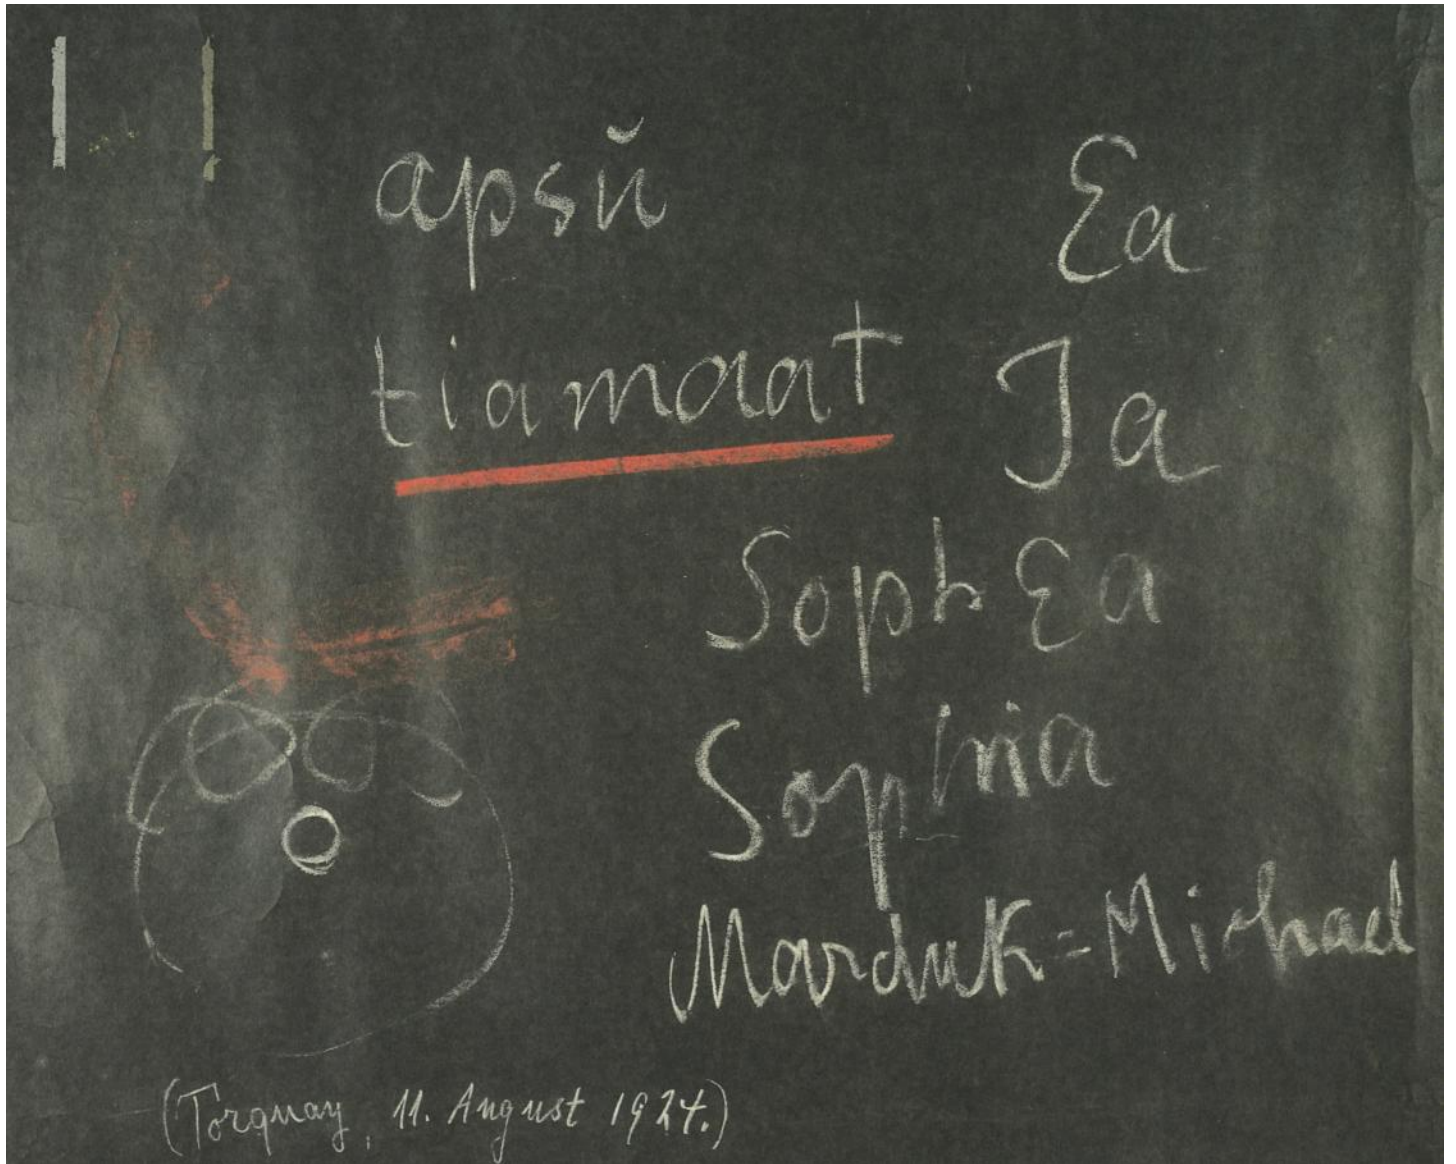 apsŭ Ea
tiamaat Ja
SophEa
Sophia
Marduk = Michael
(Torquay, 11. August 1924.)